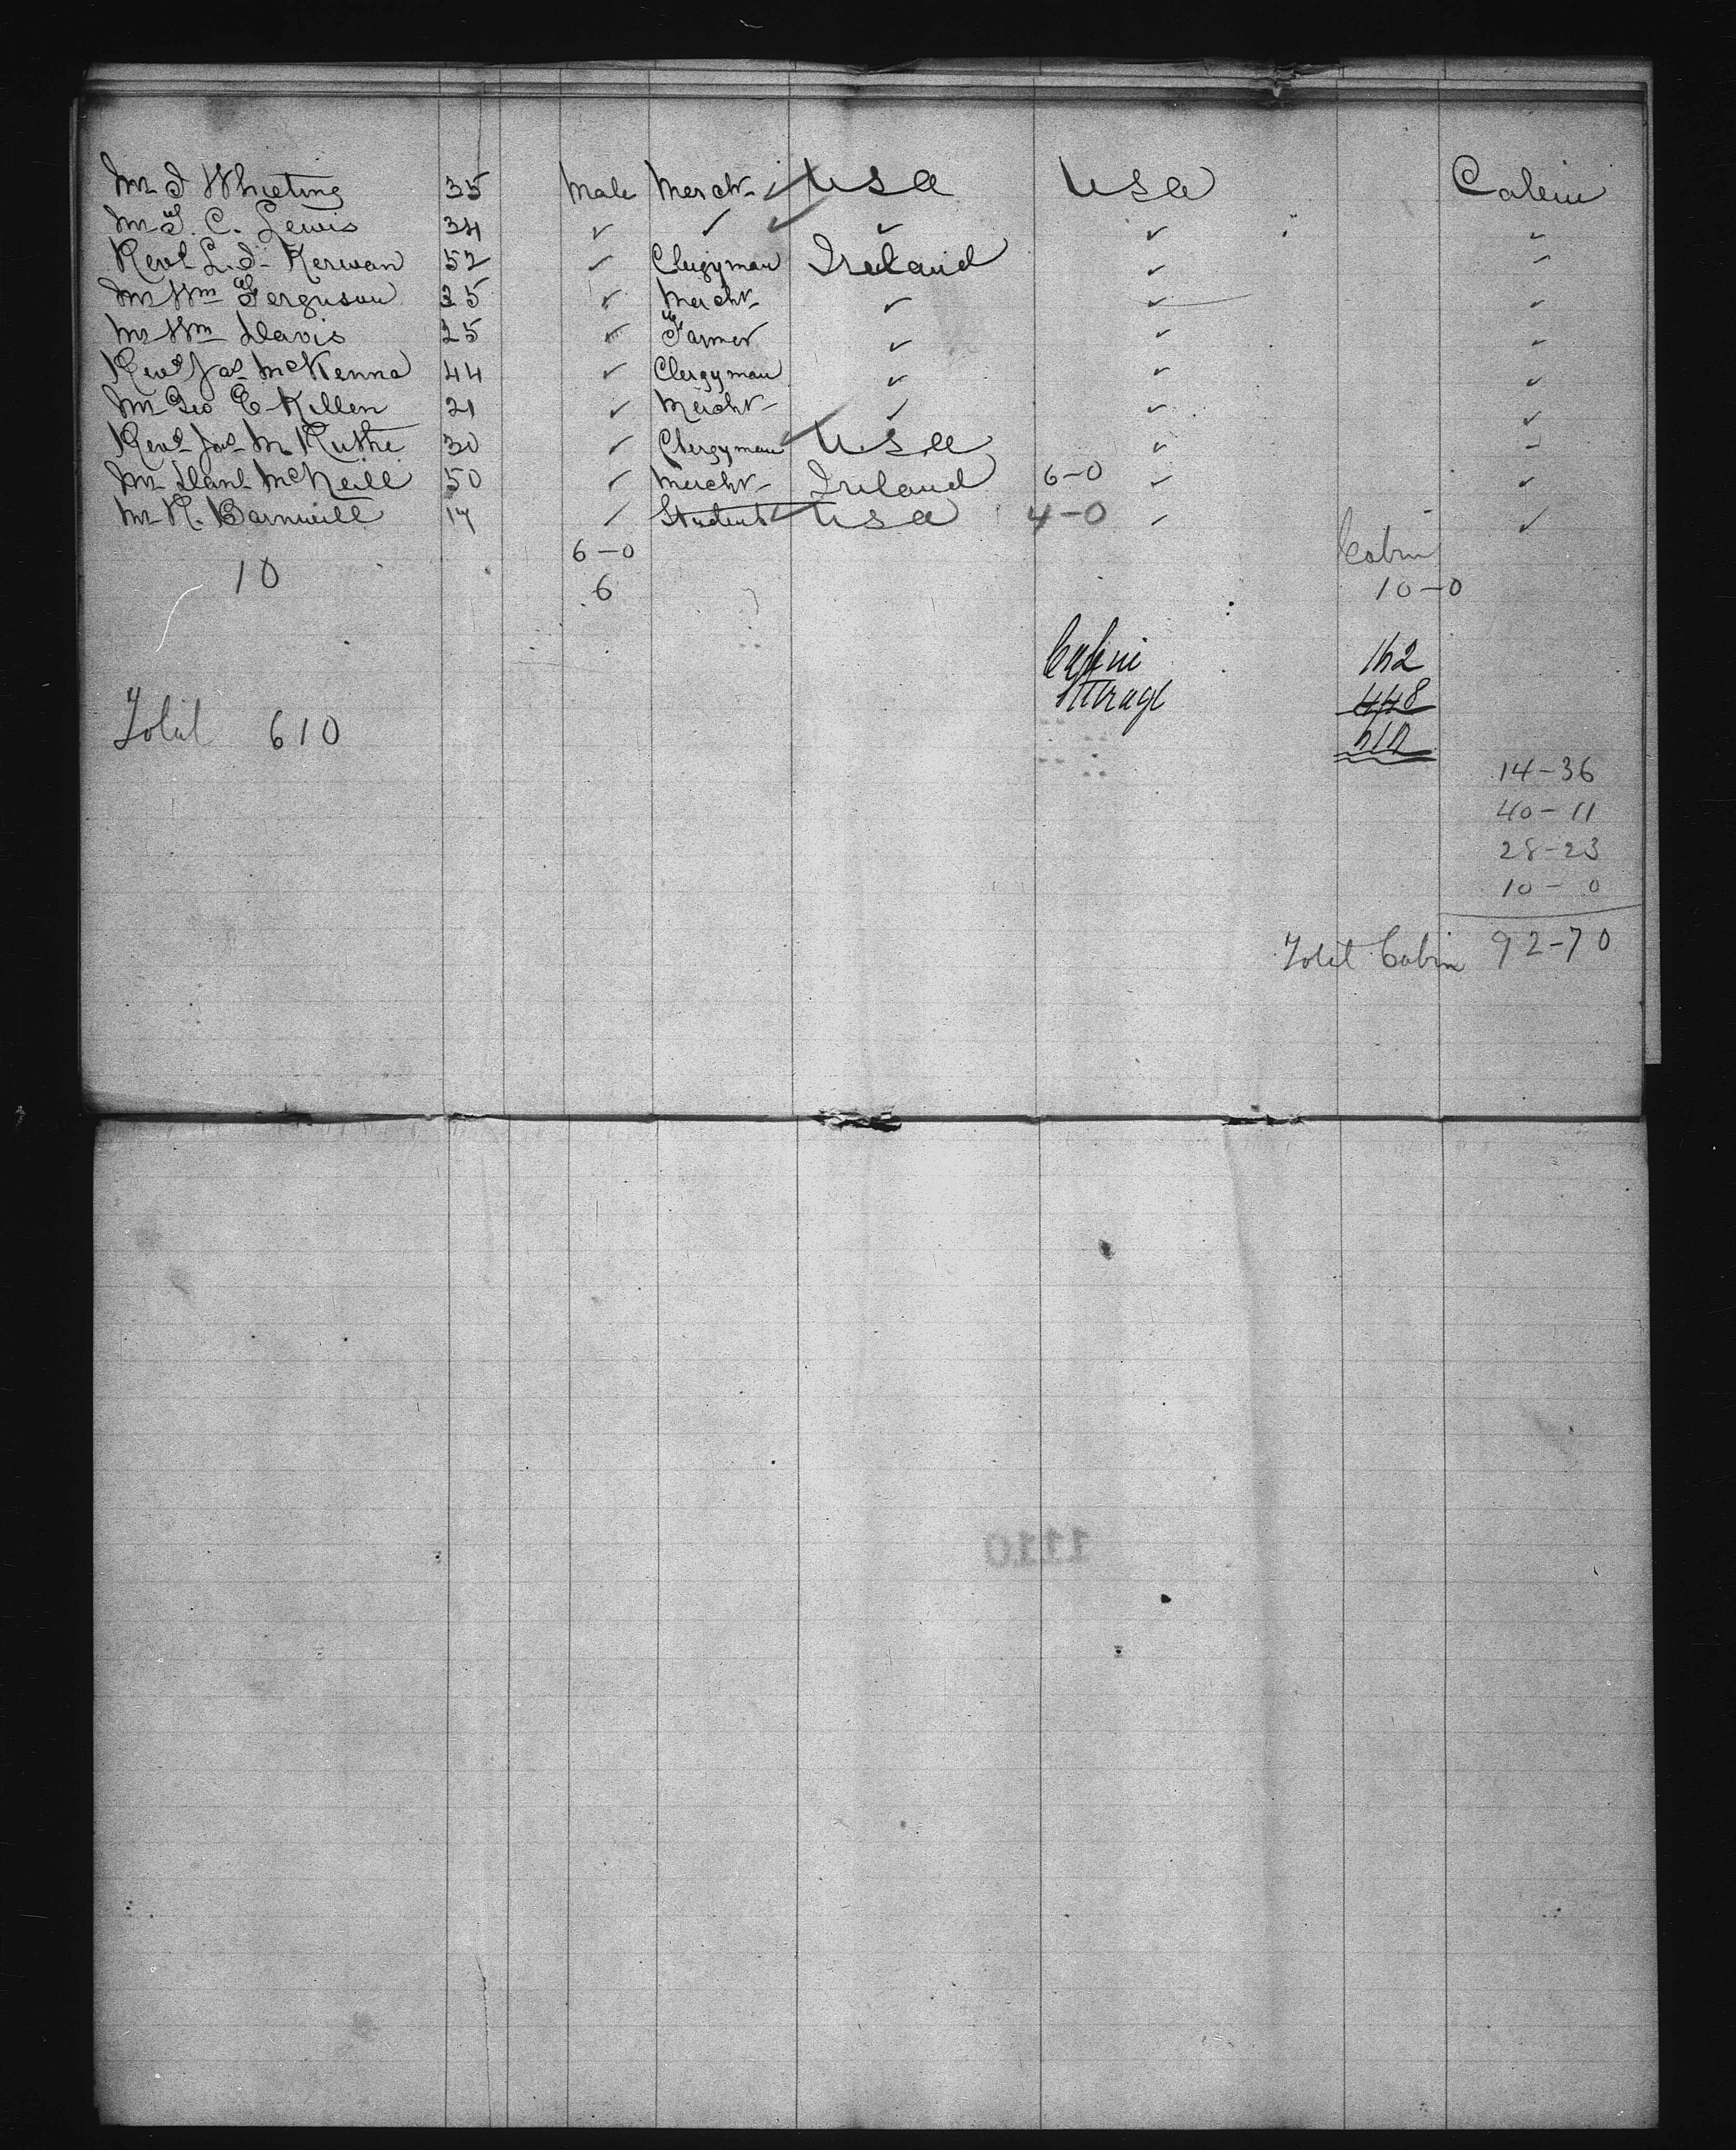 Mr I Whieting 35 Male Mercht ✓ USA USA Cabin
Mr T. C. Lewis 34 ✓ ✓ ✓ ✓ ✓ ✓
Revd L. J. Kerwan 52 ✓ Clergyman Ireland ✓ ✓
Mr Wm Ferguson 25 ✓ Mercht ✓ ✓ ✓
Mr Wm Davis 25 ✓ Farmer ✓ ✓ ✓
Revd Jas McKenna 44 ✓ Clergyman ✓ ✓ ✓
Mr Geo E Killen 21 ✓ Mercht ✓ ✓ ✓
Revd Jas M Ruthe 30 ✓ Clergyman ✓ USA ✓ ✓
Mr Danl McNeill 50 ✓ Mercht Ireland 6-0 ✓ ✓
Mr R. Barnwill 17 ✓ Student ✓ USA 4-0 ✓ ✓
6-0 Cabin
10 6 10-0
Cabin 162
Sterage 448
Total 610 610
14-36
40-11
28-23
10-0
Total Cabin 92-70
1110